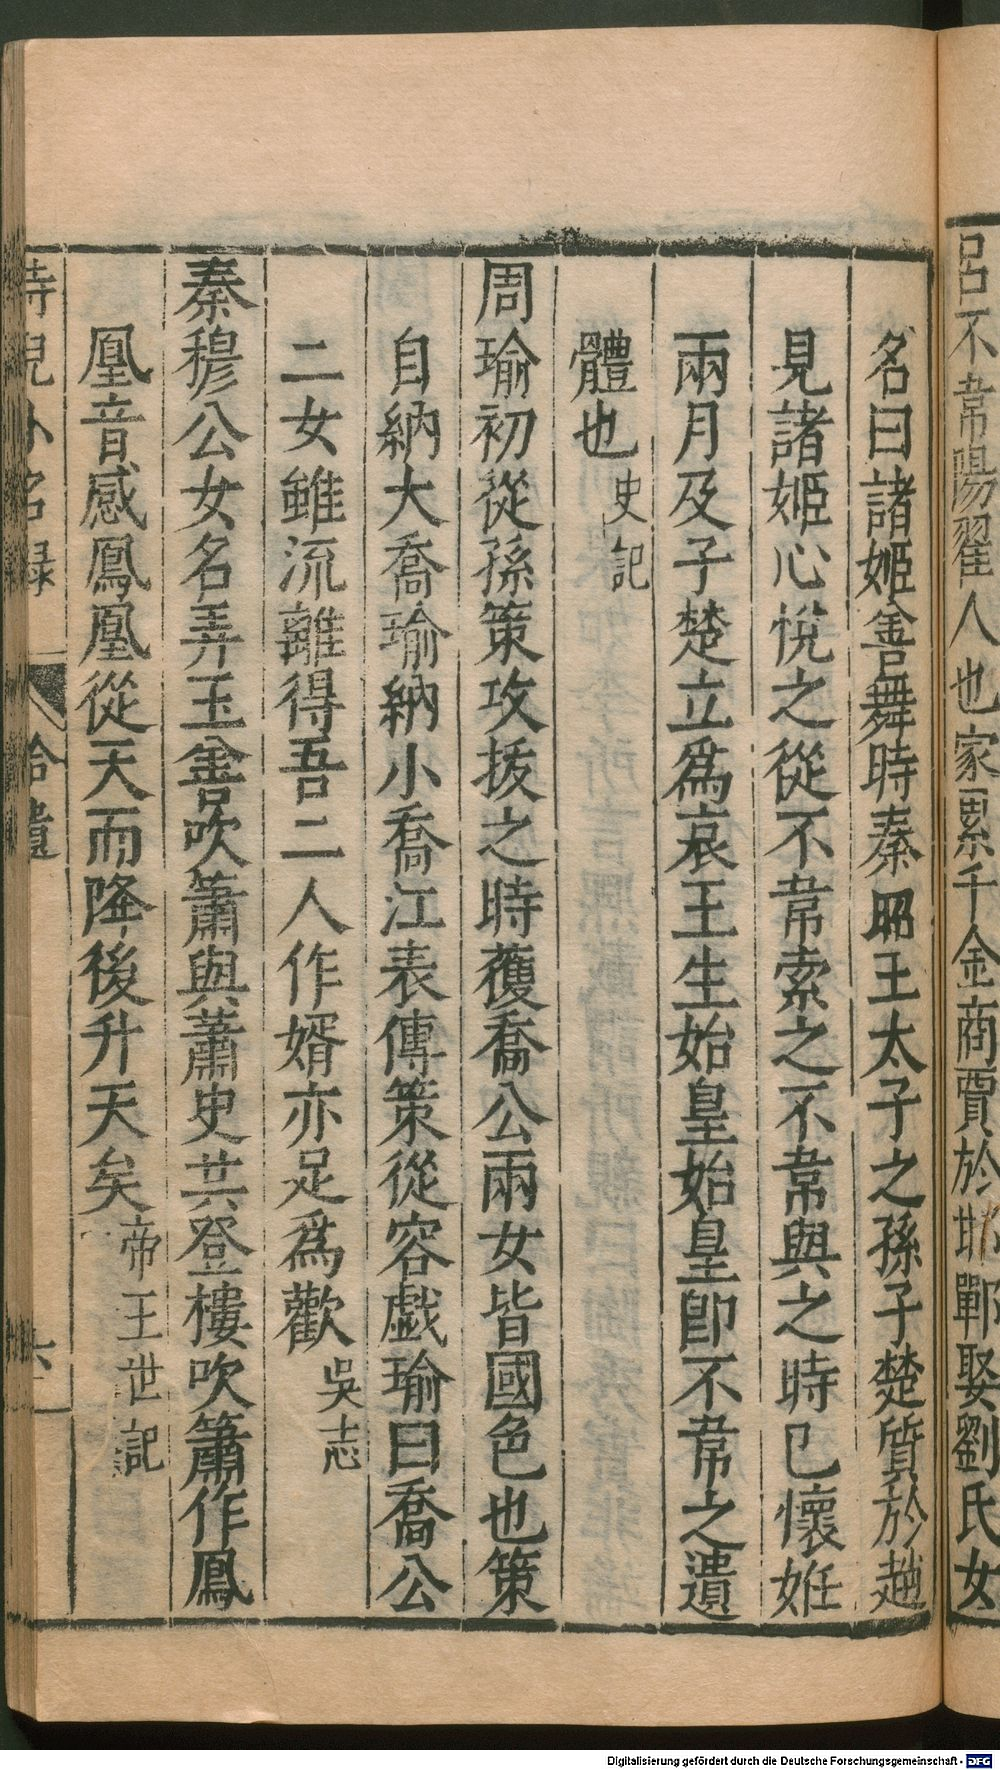 呂不韋陽翟人也家累千金商賈於邯鄲娶劉氏女
名曰諸姬善舞時秦昭王太子之孫子楚質於趙
見諸姬心悅之從不韋索之不韋與之時已懷姙
兩月及子楚立為哀王生始皇始皇卽不韋之遺
體也史記
周瑜初從孫策攻拔之時獲喬公兩女皆國色也策
自納大喬瑜納小喬江表傳策從容戯瑜曰喬公
二女雖流離得吾二人作婿亦足爲歡吳志
秦穆公女名弄玉善吹簫與蕭史共登樓吹簫作鳳
凰音感鳳凰從天而降後升天矣帝王世記
侍兒小名録 拾遺 六
Digitalisierung gefördert durch die Deutsche Forschungsgemeinschaft - DFG